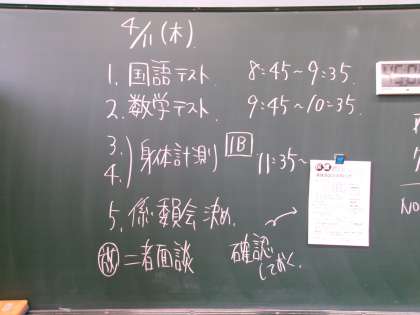 4/11(木)
1. 国語テスト 8:45~9:35.
2. 数学テスト 9:45~10:35.
3.
4. 身体計測 1B 11:35~
5. 係・委員会決め.
放 二者面談 確認しておく.
NO